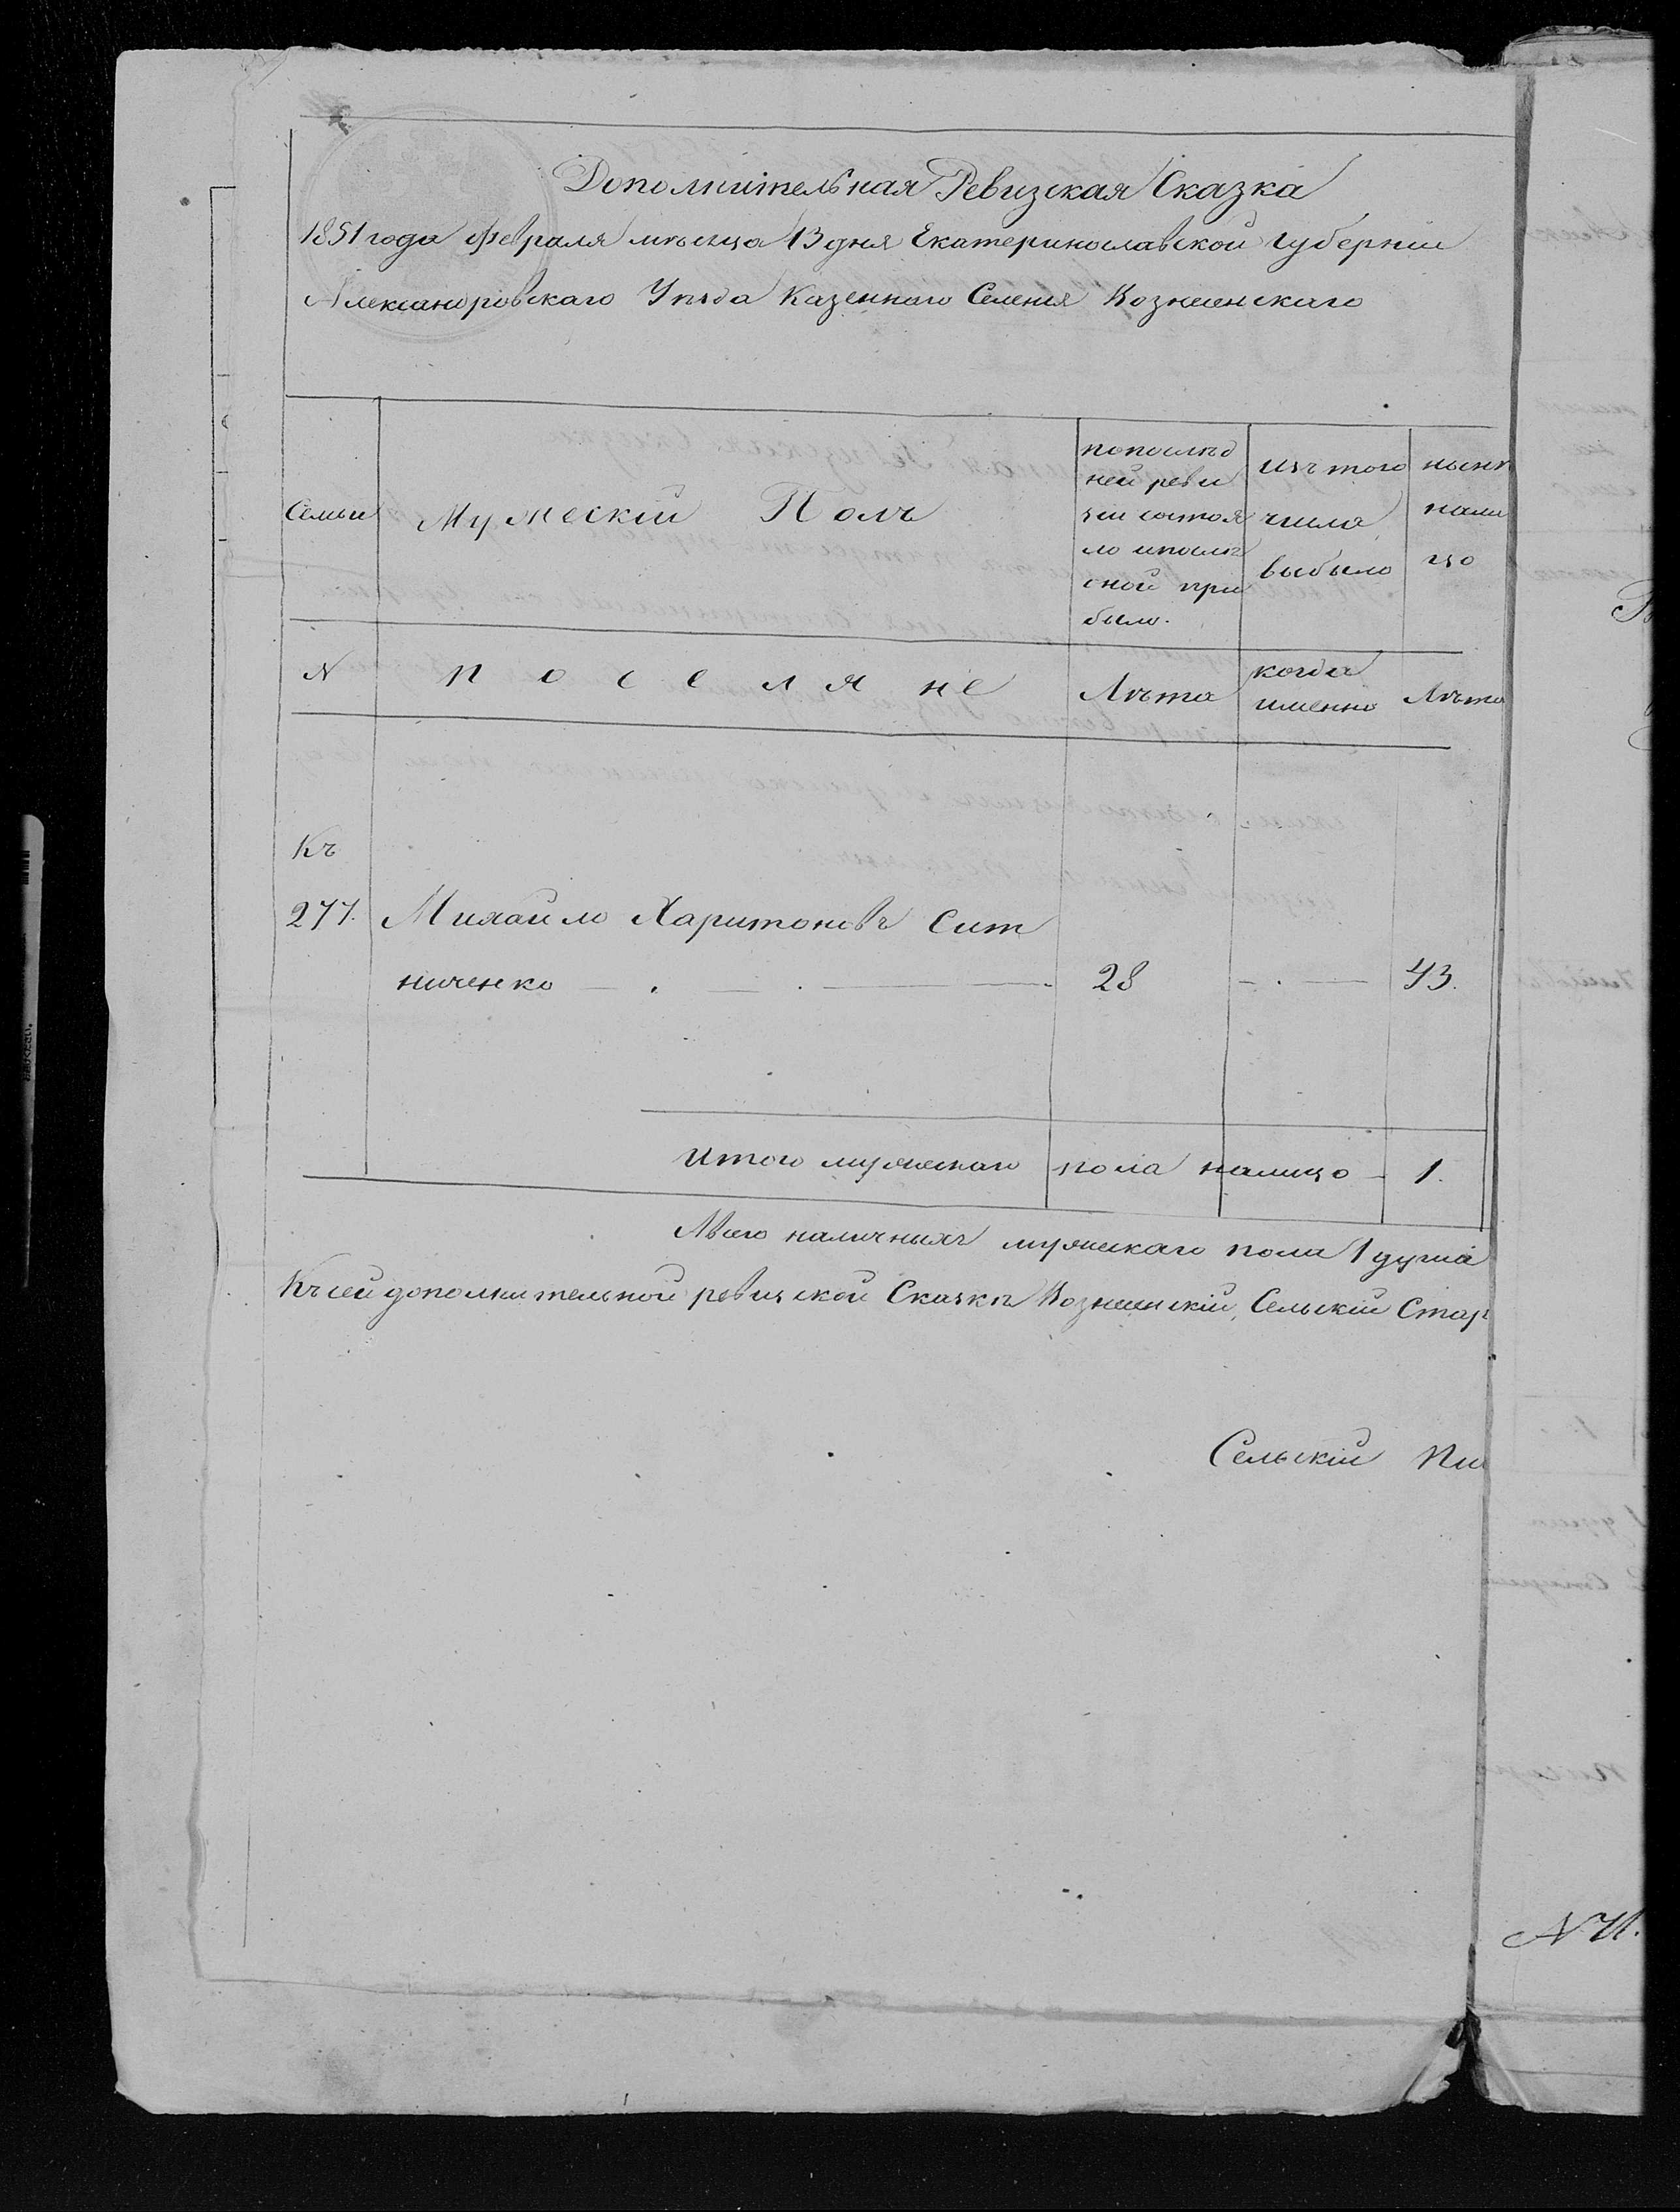 Дополнительная Ревизская Сказка
1851 года февраля мѣсяца 13 дня Екатеринославской губерніи
Александровскаго Уѣзда Казеннаго Селенія Вознесенскаго
Семьи
Мужескій Полъ
попослѣд
ней реви
зіи состоя
ло ипослѣ
оной при
было.
изъ того
числа
выбыло
нынѣ
нали
цо
N
поселяне
Лѣта
когда
именно
Лѣта
Къ
277.
Михайло Харитоновъ Сит
ниченко — . — . — 28 — . — 43.
Итого мужескаго пола налицо — 1.
Всего наличныхъ мужескаго пола 1 душа
Къ сей дополнительной ревизской Сказкѣ Вознесенскій Сельскій Стар
Сельскій Пи